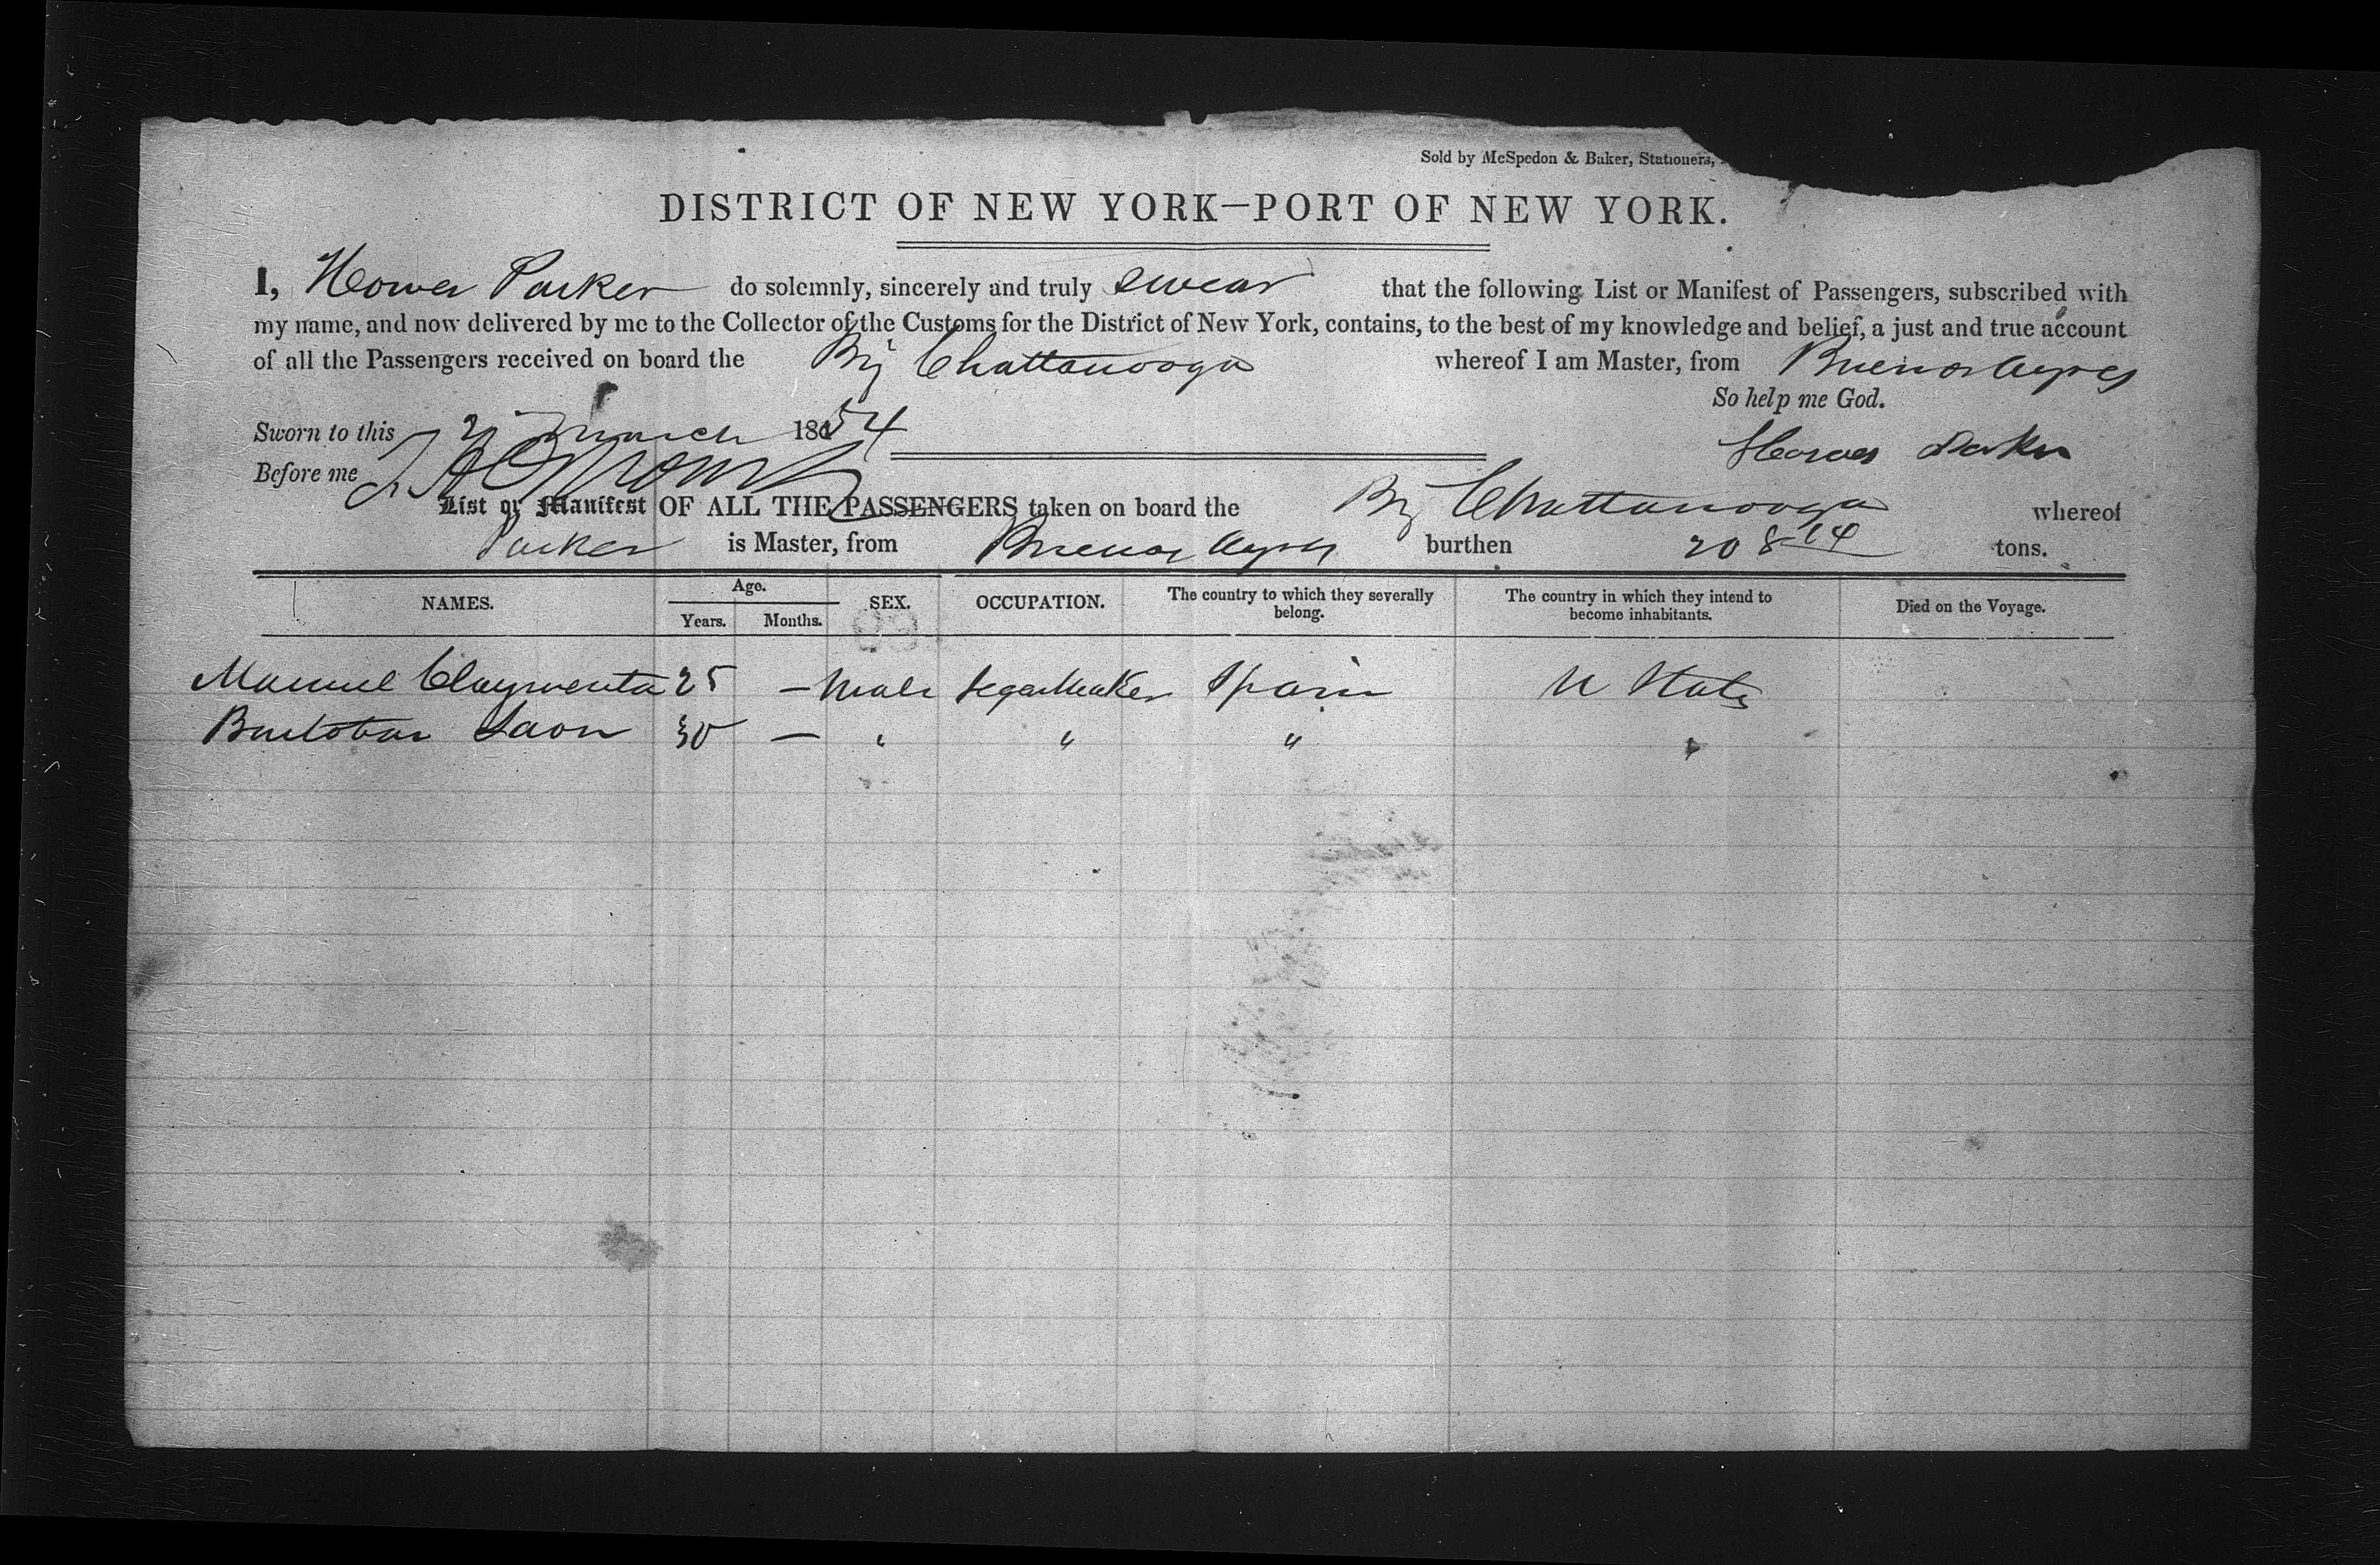 Sold by McSpedon & Baker, Stationers,
DISTRICT OF NEW YORK—PORT OF NEW YORK.
I, Homer Parker do solemnly, sincerely and truly swear that the following List or Manifest of Passengers, subscribed with
my name, and now delivered by me to the Collector of the Customs for the District of New York, contains, to the best of my knowledge and belief, a just and true account
of all the Passengers received on board the Brig Chattanooga whereof I am Master, from Buenos Ayres
So help me God.
Sworn to this March 1854
Parker
Before me
List or Manifest OF ALL THE PASSENGERS taken on board the Brig Chattanooga whereof
Parker is Master, from Buenos Ayres burthen 208 14 tons.
NAMES. Age. Years. Months. SEX. OCCUPATION. The country to which they severally belong. The country in which they intend to become inhabitants. Died on the Voyage.
Manuel 25 — Male Segar Maker Spain U States
30 — " " " "